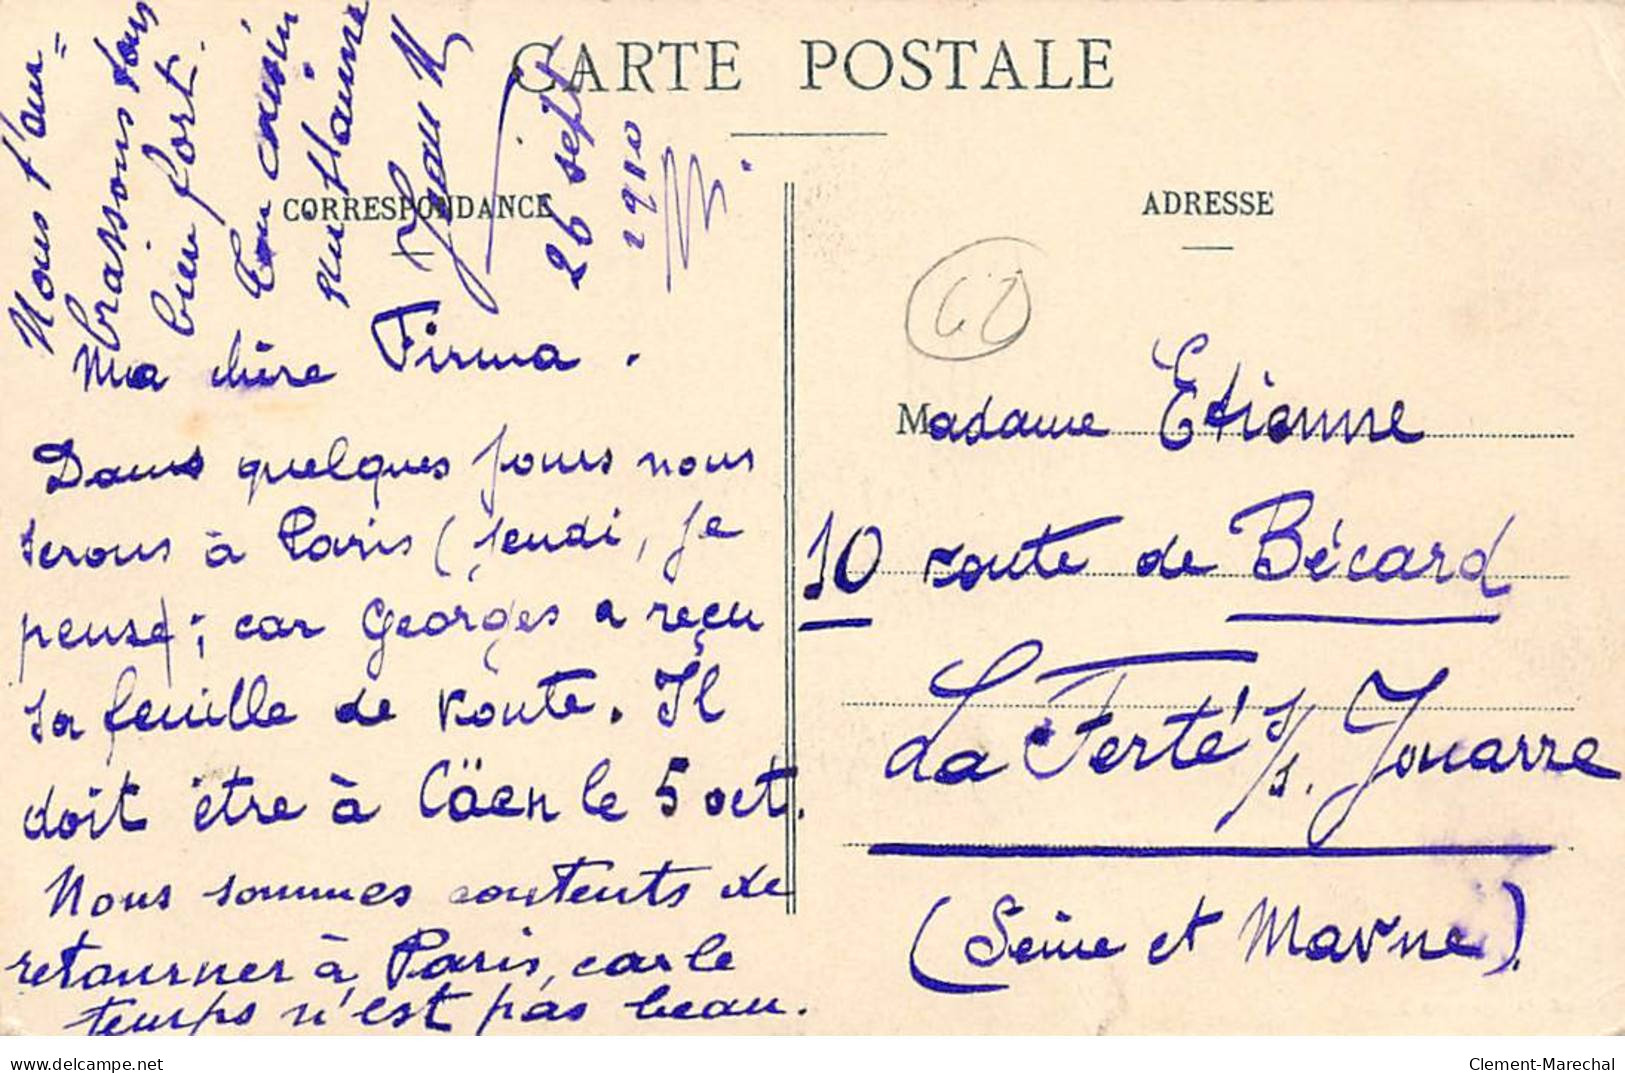 CARTE POSTALE
CORRESPONDANCE
ADRESSE
26 sept
1910
Ma chère Firma.
Dans quelques jours nous
serons à Paris (jeudi, je
pense; car Georges a reçu
sa feuille de route. Il
doit être à Cäen le 5 oct.
Nous sommes contents de
retourner à Paris, car le
temps n'est pas beau.
Nous t'em=
brassons tous
bien fort.
Ton cousin
qui t'aime
Jean
Madame Etienne
10 route de Bécard
La Ferté s/s. Jouarre
(Seine et Marne).
delcampe.net
Clement-Marechal